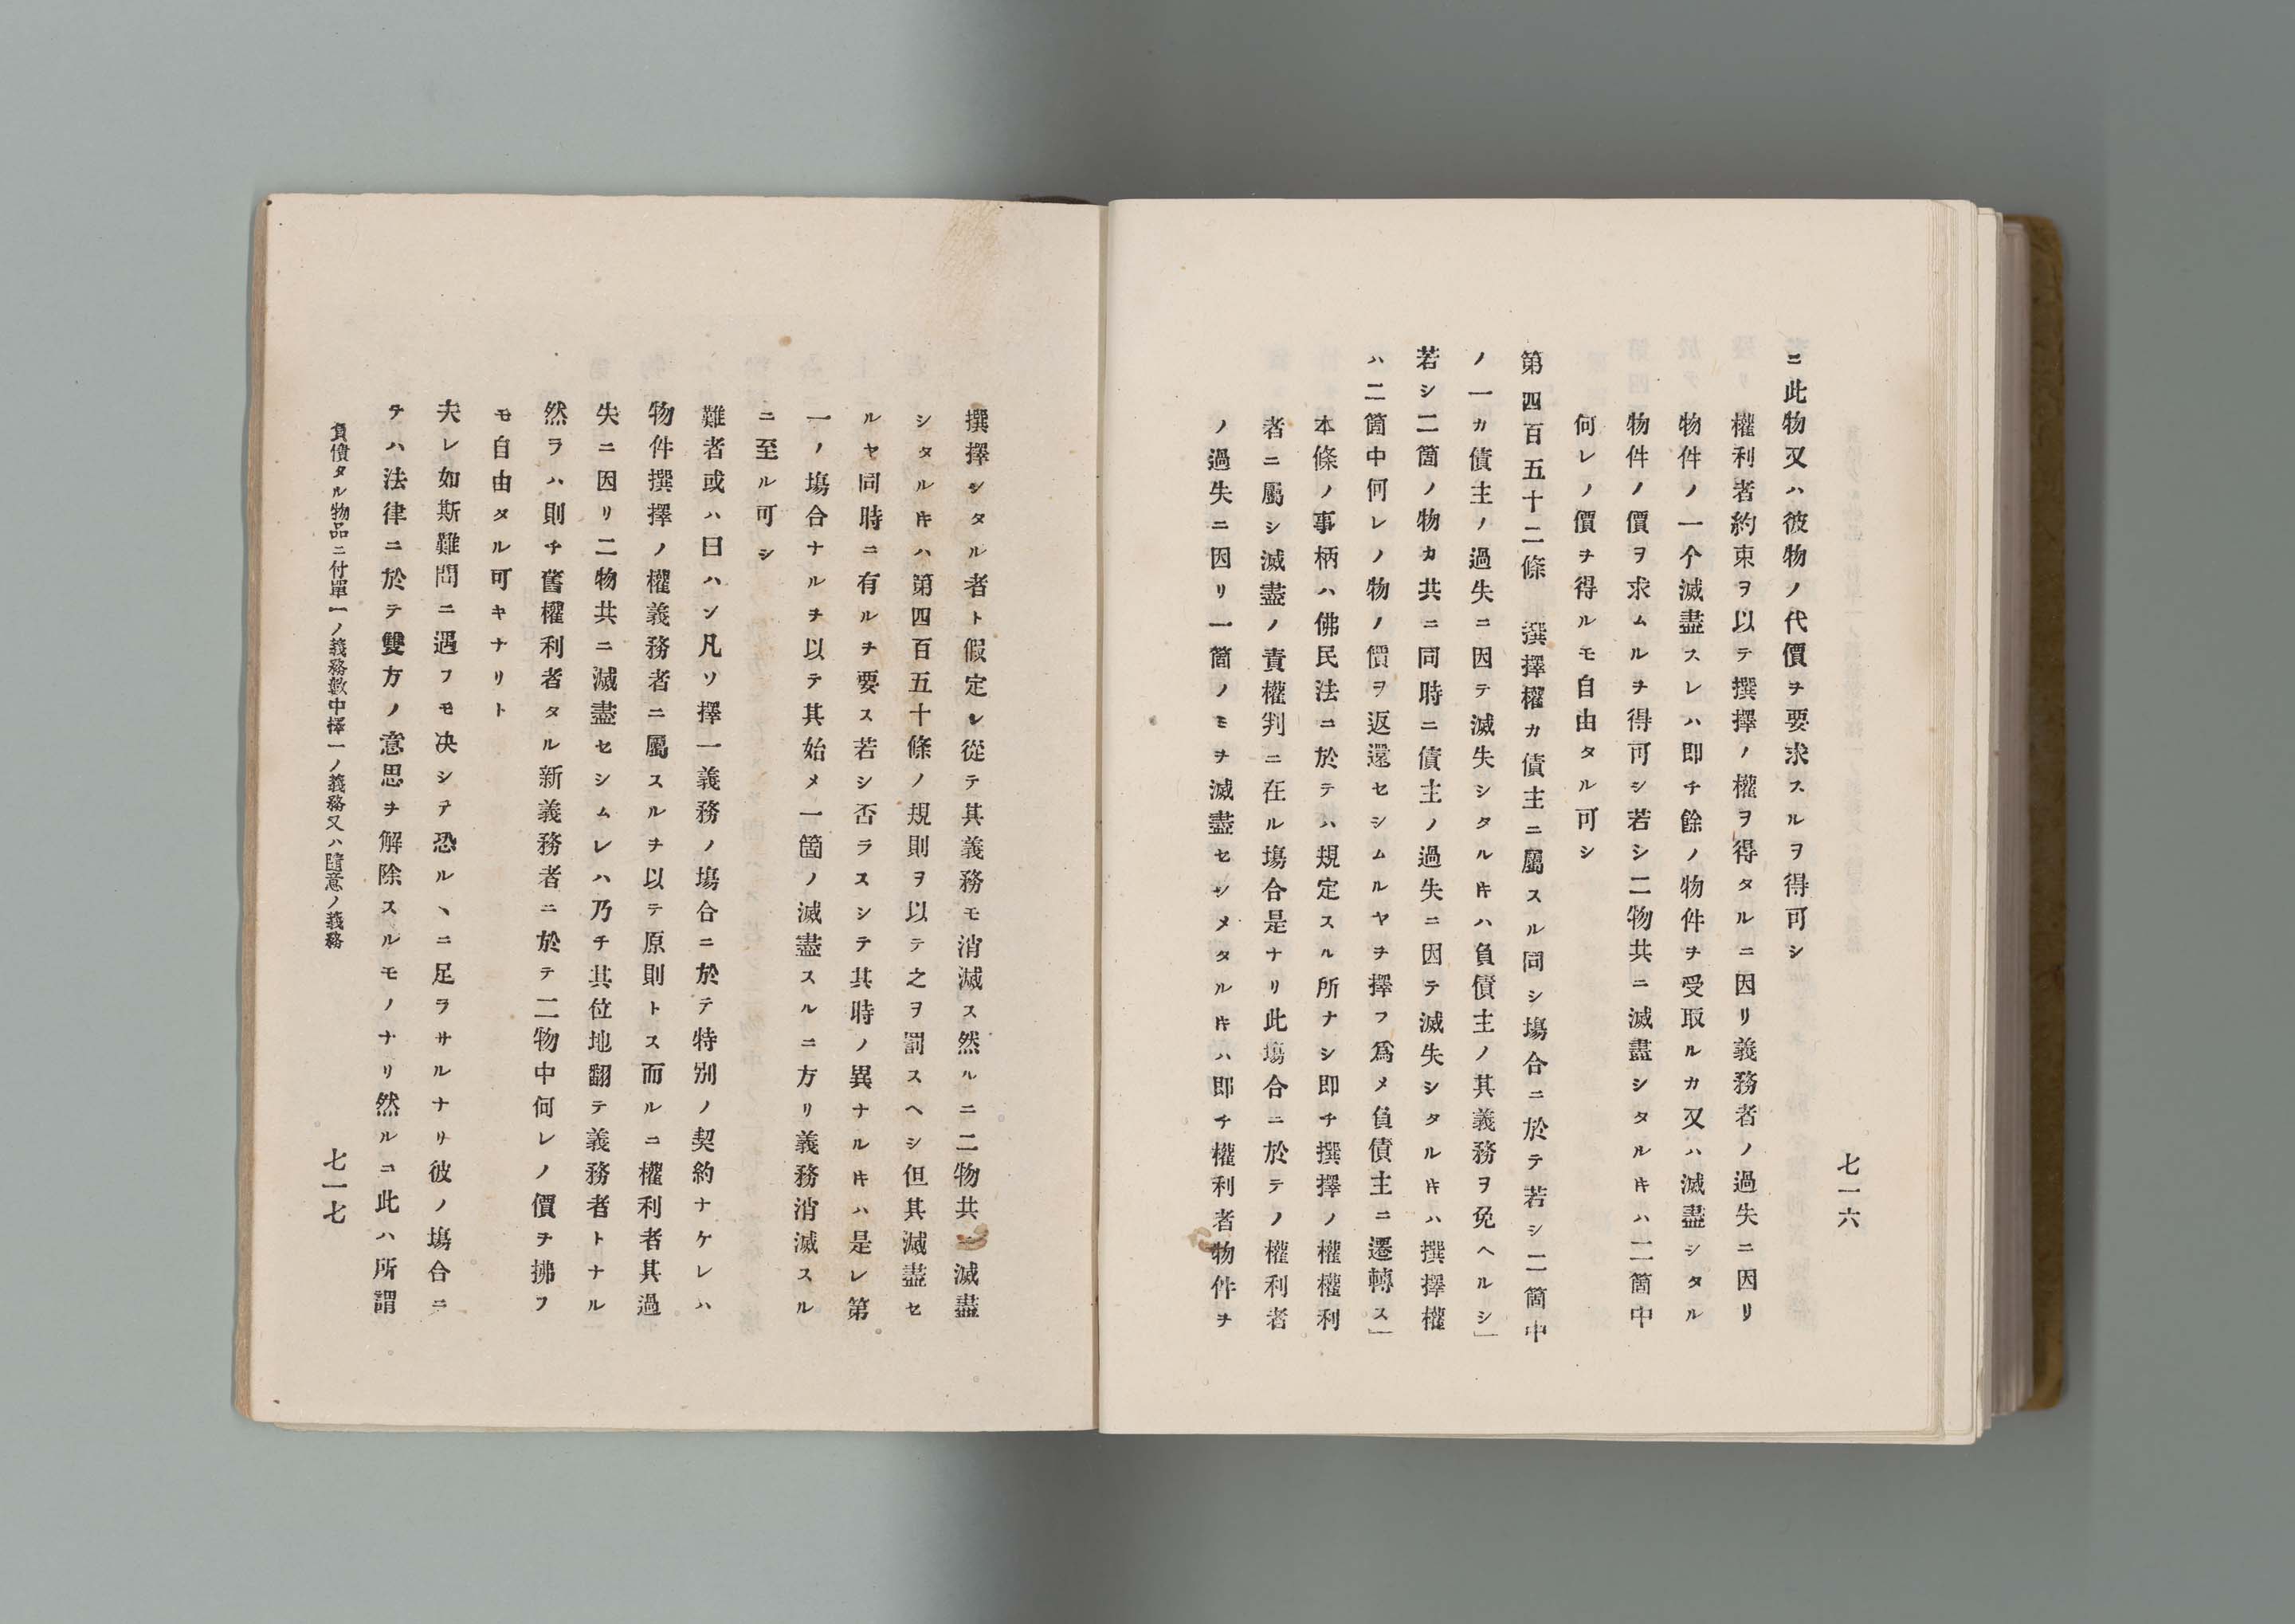 七一六
ニ此物又ハ彼物ノ代價ヲ要求スルヲ得可シ
權利者約束ヲ以テ撰擇ノ權ヲ得タルニ因リ義務者ノ過失ニ因リ
物件ノ一个滅盡スレハ即チ餘ノ物件ヲ受取ルカ又ハ滅盡シタル
物件ノ價ヲ求ムルヲ得可シ若シ二物共ニ滅盡シタルトキハ二箇中
何レノ價ヲ得ルモ自由タル可シ
第四百五十二條 撰擇權カ債主ニ屬スル同シ塲合ニ於テ若シ二箇中
ノ一カ債主ノ過失ニ因テ滅失シタルトキハ負債主ノ其義務ヲ免ヘルシ」
若シ二箇ノ物カ共ニ同時ニ債主ノ過失ニ因テ滅失シタルトキハ撰擇權
ハ二箇中何レノ物ノ價ヲ返還セシムルヤヲ擇フ爲メ負債主ニ遷轉ス」
本條ノ事柄ハ佛民法ニ於テハ規定スル所ナシ即チ撰擇ノ權權利
者ニ屬シ滅盡ノ責權判ニ在ル塲合是ナリ此塲合ニ於テノ權利者
ノ過失ニ因リ一箇ノミヲ滅盡セシメタルトキハ即チ權利者物件ヲ
撰擇シタル者ト假定シ從テ其義務モ消滅ス然ルニ二物共ニ滅盡
シタルトキハ第四百五十條ノ規則ヲ以テ之ヲ罰スヘシ但其滅盡セ
ルヤ同時ニ有ルヲ要ス若シ否ラスシテ其時ノ異ナルトキハ是レ第
一ノ塲合ナルヲ以テ其始メ一箇ノ滅盡スルニ方リ義務消滅スル
ニ至ル可シ
難者或ハ曰ハン凡ソ擇一義務ノ塲合ニ於テ特別ノ契約ナケレハ
物件撰擇ノ權義務者ニ屬スルヲ以テ原則トス而ルニ權利者其過
失ニ因リ二物共ニ滅盡セシムレハ乃チ其位地翻テ義務者トナル
然ラハ則チ舊權利者タル新義務者ニ於テ二物中何レノ價ヲ拂フ
モ自由タル可キナリト
夫レ如斯難問ニ遇フモ决シテ恐ルヽニ足ラサルナリ彼ノ塲合ニ
テハ法律ニ於テ雙方ノ意思ヲ解除スルモノナリ然ルニ此ハ所謂
負債タル物品ニ付單一ノ義務數中擇一ノ義務又ハ隨意ノ義務
七一七